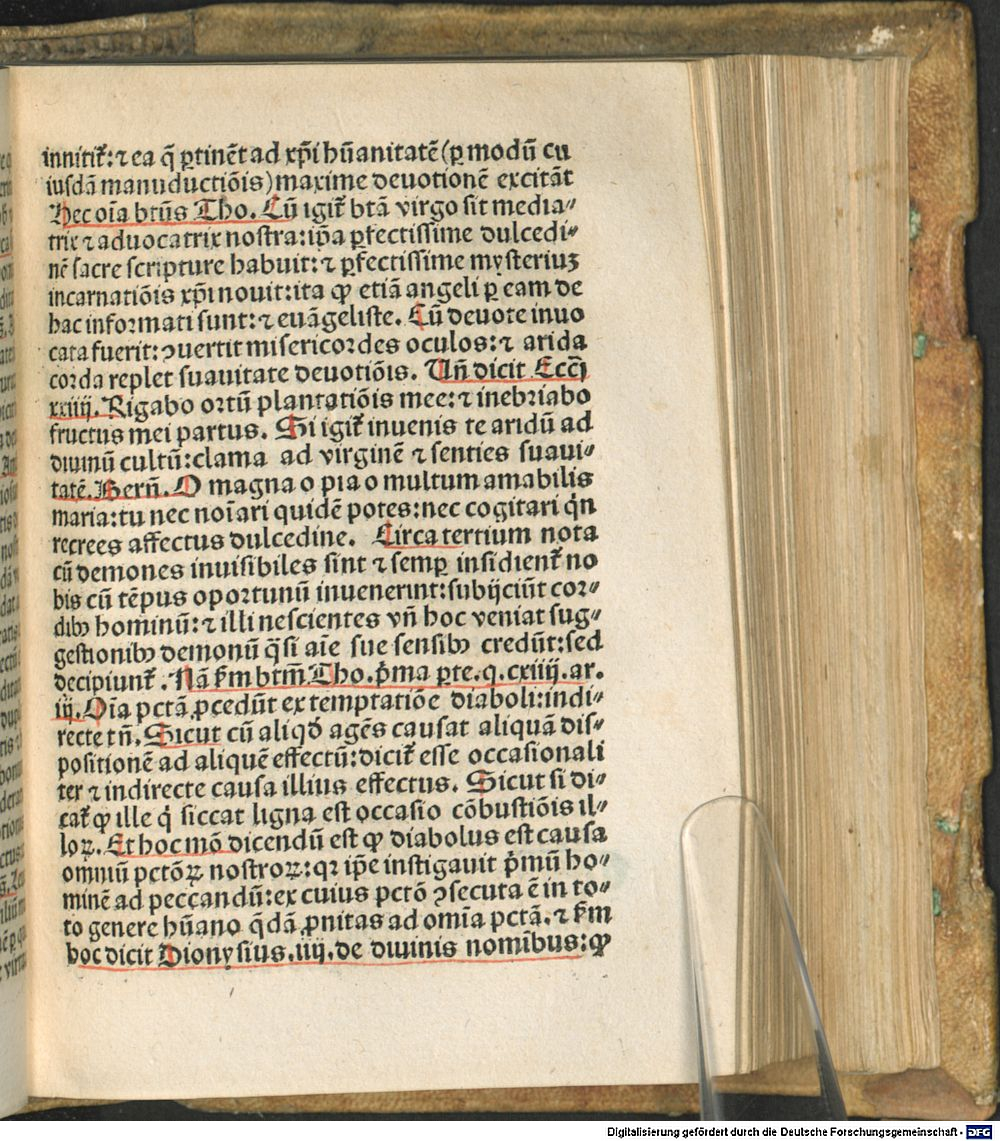 innitit᷑: ⁊ ea q̄ ꝑtinēt ad xp̄i hūanitatē (ꝑ modū cu
iusdā manuductiōis) maxime deuotionē excitāt
Hec oīa btūs Tho. Cū igit᷑ btā virgo sit media⸗
trix ⁊ aduocatrix nostra: ip̄a ꝑfectissime dulcedi⸗
nē sacre scripture habuit: ⁊ ꝑfectissime mysteriuꝫ
incarnatiōis xp̄i nouit: ita ꝙ etiā angeli ꝑ eam de
hac informati sunt: ⁊ euāgeliste. Cū deuote inuo
cata fuerit: ꝯuertit misericordes oculos: ⁊ arida
corda replet suauitate deuotiōis. Uñ dicit Ecc̄i
xxiiij. Rigabo ortū plantatiōis mee: ⁊ inebriabo
fructus mei partus. Si igit᷑ inuenis te aridū ad
diuinū cultū: clama ad virginē ⁊ senties suaui⸗
tatē. Berñ. O magna o pia o multum amabilis
maria: tu nec noīari quidē potes: nec cogitari q̇n
recrees affectus dulcedine. Circa tertium nota
cū demones inuisibiles sint ⁊ semꝑ insidient᷑ no
bis cū tēpus oportunū inuenerint: subijciūt cor⸗
dibꝰ hominū: ⁊ illi nescientes vñ hoc veniat sug⸗
gestionibꝰ demonū q̄si aīe sue sensibꝰ credūt: sed
decipiunt᷑. Nā s̄m btm̄ Tho. p̄ma ꝑte. q. cxiiij. ar.
iij. Oīa pctā ꝓcedūt ex temptatiōe diaboli: indi⸗
recte tñ. Sicut cū aliqd̄ agēs causat aliquā dis⸗
positionē ad aliquē effectū: dicit᷑ esse occasionali
ter ⁊ indirecte causa illius effectus. Sicut si di⸗
cat᷑ ꝙ ille q̇ siccat ligna est occasio cōbustiōis il⸗
loꝝ. Et hoc mō dicendū est ꝙ diabolus est causa
omniū pctōꝝ nostroꝝ: qꝛ ip̄e instigauit p̄mū ho⸗
minē ad peccandū: ex cuius pctō ꝯsecuta ē in to⸗
to genere hūano q̄dā ꝓnitas ad omīa pctā. ⁊ s̄m
hoc dicit Dionysius. iiij. de diuinis nomībus: ꝙ
Digitalisierung gefördert durch die Deutsche Forschungsgemeinschaft - DFG